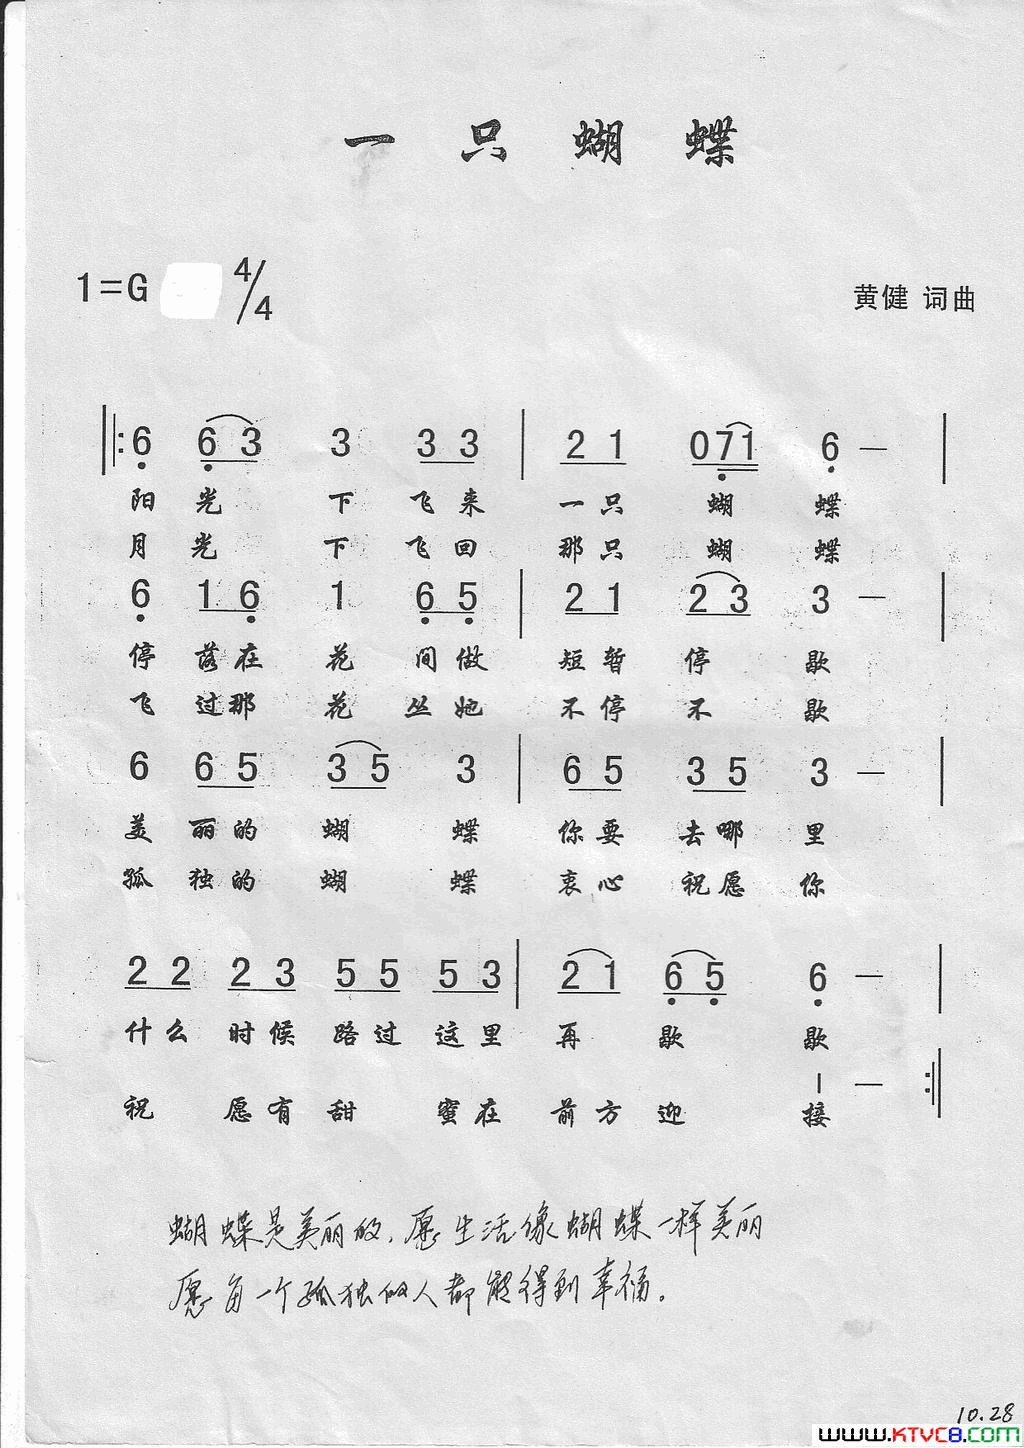 一只蝴蝶
1=G 4/4
黄健 词曲
6 6 3 3 3 3 2 1 071 6 —
阳光 下 飞来 一只 蝴 蝶
月光 下 飞回 那只 蝴 蝶
6 1 6 1 6 5 2 1 2 3 3 —
停 落在 花 间做 短暂 停 歇
飞 过那 花 丛她 不停 不 歇
6 6 5 3 5 3 6 5 3 5 3 —
美 丽的 蝴 蝶 你要 去哪 里
孤 独的 蝴 蝶 衷心 祝愿 你
2 2 2 3 5 5 5 3 2 1 6 5 6 —
什么 时候 路过 这里 再 歇 歇
1 —
祝 愿有 甜 蜜在 前方 迎 接
蝴蝶是美丽的,愿生活像蝴蝶一样美丽
愿每一个孤独的人都能得到幸福。
10.28
www.KTVC8.com